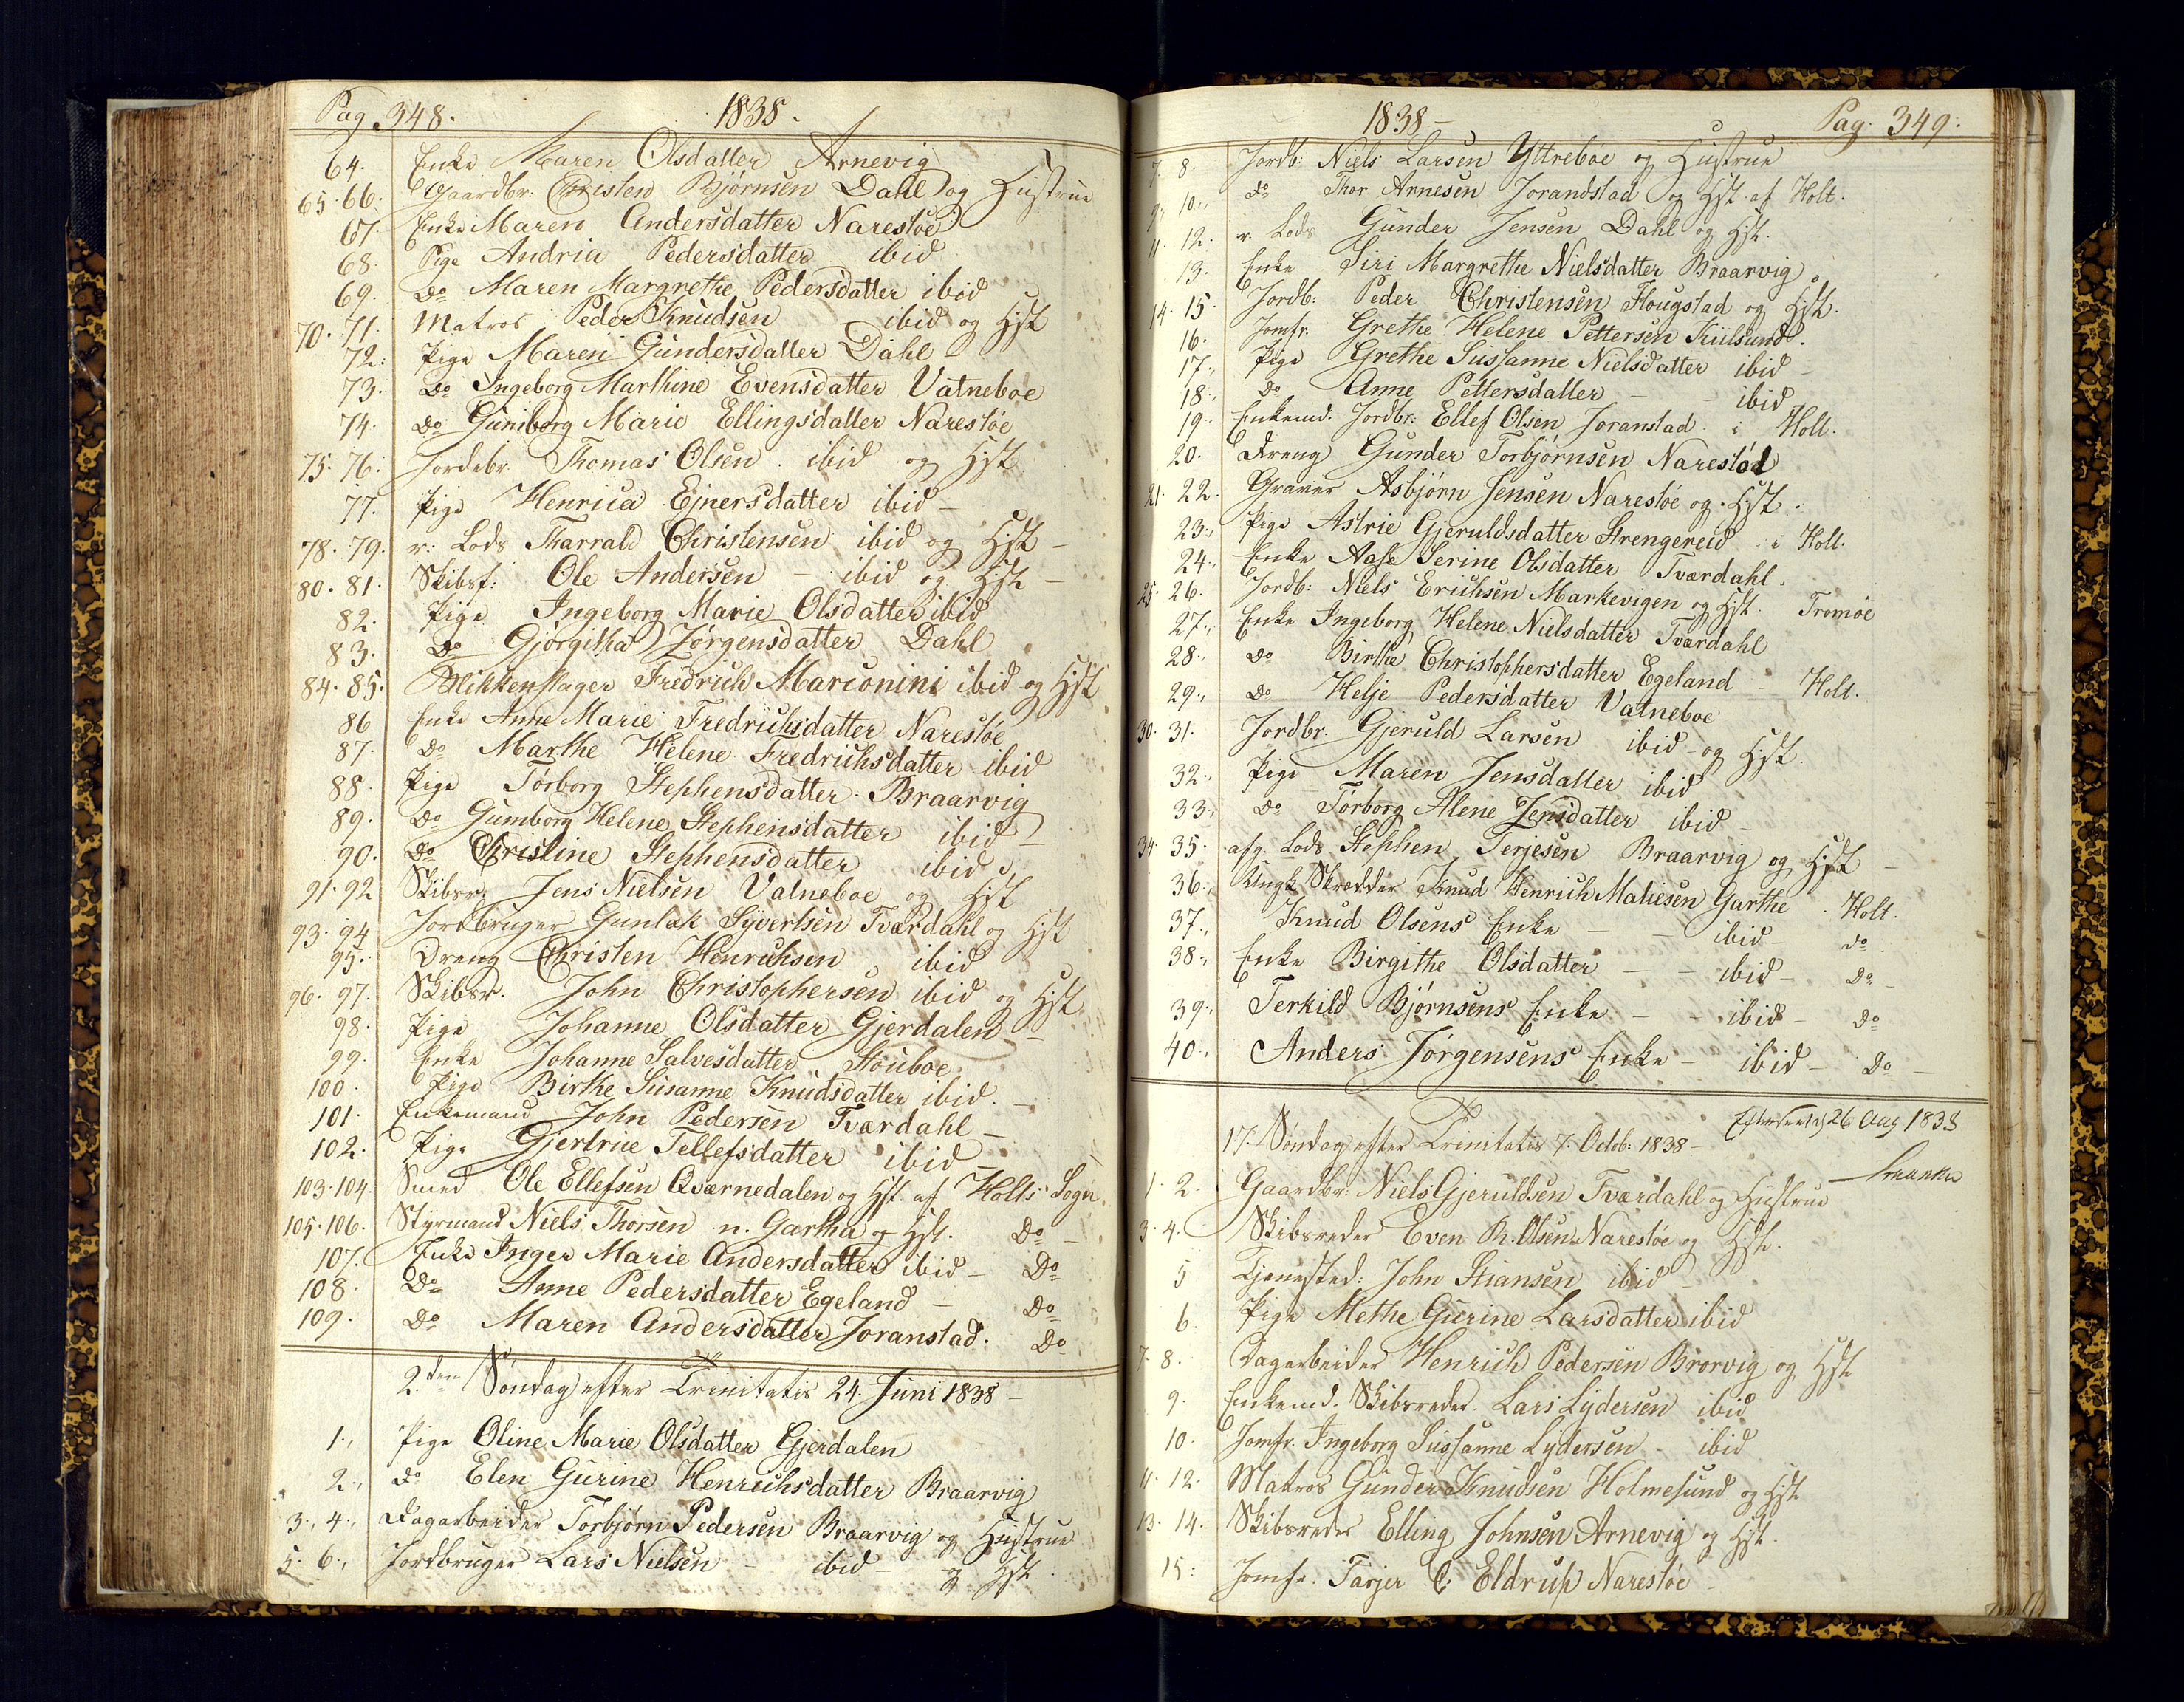 Pag. 348. 1838.
64. Enke Maren Olsdatter Arnevig
65. 66. Gaardbr: Christen Bjørnsen Dahl og Hustrue
67. Enke Maren Andersdatter Narestøe
68. Pige Andria Pedersdatter ibid
69. Do Maren Margrethe Pedersdatter ibid
70. 71. Matros Peder Knudsen ibid og Hst
72. Pige Maren Gundersdatter Dahl
73. Do Ingeborg Marthine Evensdatter Vatneboe
74. Do Gunborg Marie Ellingsdatter Narestøe
75. 76. Jordebr. Thomas Olsen ibid og Hst
77. Pige Henrica Ejnersdatter ibid –
78. 79. r: Lods Tharrald Christensen ibid og Hst –
80. 81. Skibsf: Ole Andersen – ibid og Hst –
82. Pige Ingeborg Marie Olsdatter ibid
83. Do Gjørgitha Jørgensdatter Dahl
84. 85. Blikkenslager Fredrich Marconini ibid og Hst
86 Enke Anne Marie Fredrichsdatter Narestøe
87. Do Marthe Helene Fredrichsdatter ibid
88. Pige Tørborg Stephensdatter Braarvig
89. Do Gumborg Helene Stephensdatter ibid –
90. Do Christine Stephensdatter ibid
91. 92 Skibsr. Jens Nielsen Vatneboe og Hst
93. 94 Jordbruger Gunlak Syvertsen Tværdahl og Hst
95. Dreng Christen Henrichsen ibid
96. 97. Skibsr. John Christophersen ibid og Hst
98. Pige Johanne Olsdatter Gjerdalen –
99. Enke Johanne Salvesdatter Stouboe
100. Pige Birthe Susanne Knudsdatter ibid. –
101. Enkemand John Pedersen Tværdahl –
102. Pige Gjertrue Tellefsdatter ibid –
103. 104. Smed Ole Ellefsen Qværnedalen og Hst. af Holts Sogn
105. 106. Styrmand Niels Thorsen n. Gartha og Hst. Do –
107. Enke Inger Marie Andersdatter ibid – Do
108. Do Anne Pedersdatter Egeland – Do
109. Do Maren Andersdatter Joranstad. Do
2den Søndag efter Trinitatis 24. Juni 1838 –
1., Pige Oline Marie Olsdatter Gjerdalen
2., do Elen Gurine Henrichsdatter Braarvig
3., 4., Dagarbeider Torbjørn Pedersen Braarvig og Hustrue
5. 6., Jordbruger Lars Nielsen – ibid – og Hst.
1838 – Pag. 349.
7. 8. Jordb: Niels Larsen Yttreboe og Hustrue
9. 10., do Thor Arnesen Jorandstad og Hst. af Holt.
11. 12. r. Lods Gunder Jensen Dahl og Hst.
13. Enke Siri Margrethe Nielsdatter Braarvig
14. 15. Jordb: Peder Christensen Hougstad og Hst.
16. Jomfr. Grethe Helene Pettersen Kiilsund.
17., Pige Grethe Sussanne Nielsdatter ibid –
18., Do Anne Pettersdatter – – ibid
19., Enkemd. Jordbr: Ellef Olsen Joranstad i Holt.
20. Dreng Gunder Torbjørnsen Narestød
21. 22. Graver Asbjørn Jensen Narestøe og Hst.
23., Pige Astrie Gjeruldsdatter Strengereid i Holt.
24., Enke Aase Serine Olsdatter Tværdahl.
25. 26. Jordb: Niels Erichsen Markevigen og Hst. Tromøe
27., Enke Ingeborg Helene Nielsdatter Tværdahl
28., do Birthe Christophersdatter Egeland – Holt.
29., do Helje Pedersdatter Vatneboe
30. 31. Jordbr. Gjeruld Larsen ibid – og Hst.
32., Pige Maren Jensdatter ibid
33., Do Tørborg Alene Jensdatter ibid –
34. 35. afg. Lods Stephen Terjesen Braarvig og Hst –
36., Ungk. Skrædder Knud Henrich Matiesen Garthe Holt.
37., Knud Olsens Enke – – ibid – do
38., Enke Birgithe Olsdatter – – ibid – Do –
39., Terkild Bjørnsens Enke – – ibid – Do
40., Anders Jørgensens Enke – ibid – Do –
26 Aug 1838
17. Søndag efter Trinitatis 7. Octob: 1838 –
1. 2. Gaardbr: Niels Gjeruldsen Tværdahl og Hustrue
3. 4. Skibsreder Even Th. Olsen Narestøe og Hst.
5 Tjenested: John Stiansen ibid –
6. Pige Methe Gurine Larsdatter ibid
7. 8. Dagarbeider Henrich Pedersen Brorvig og Hst
9. Enkemd. Skibsreder Lars Lydersen ibid
10. Jomfr. Ingeborg Sussanne Lydersen – ibid
11. 12. Matros Gunder Knudsen Holmesund og Hst
13. 14. Skibsreder Elling Johnsen Arnevig og Hst.
15: Jomfr. Tarjer C. Eldrup Narestøe –